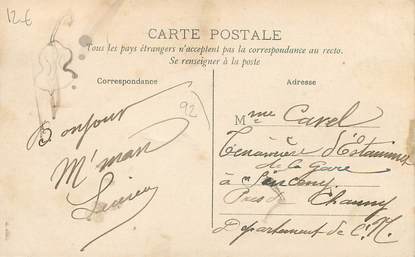 12€
CARTE POSTALE
Tous les pays étrangers n'acceptent pas la correspondance au recto.
Se renseigner à la poste
Correspondance
Adresse
92
Bonjour
M'man
Lucien
Mme Carel
Tenancière d'Estaminet
de la Gare
à Sinceny
Près de Chauny
Département de l'